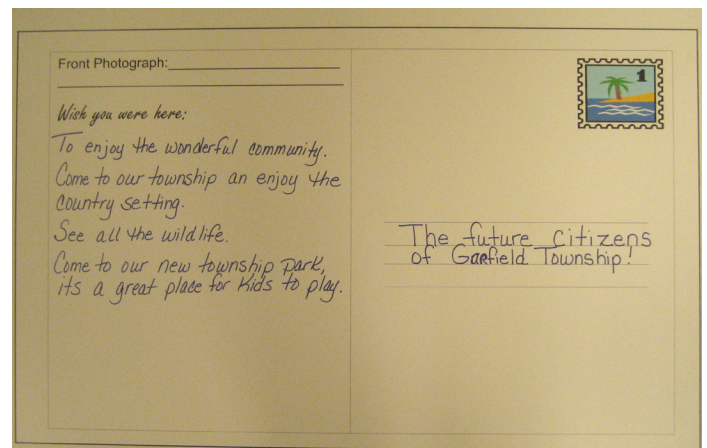 Front Photograph:
1
Wish you were here:
To enjoy the wonderful community.
Come to our township an enjoy the
country setting.
See all the wildlife.
Come to our new township park,
its a great place for kids to play.
The future citizens
of Garfield Township!